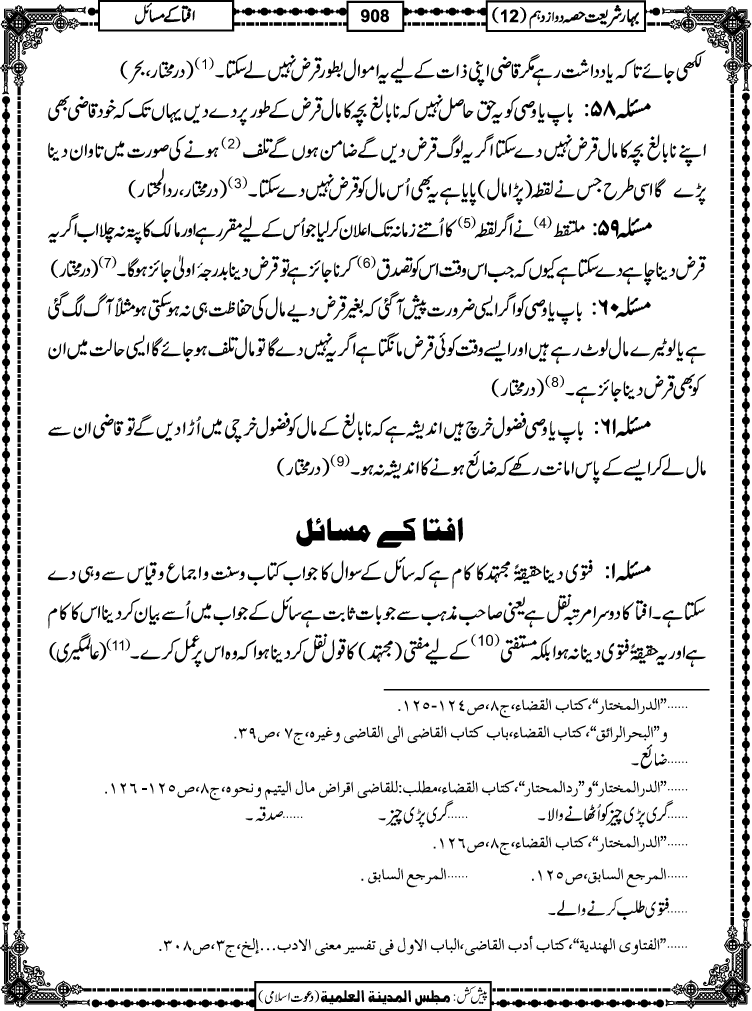 بہار شریعت حصہ دوازدہم (12)
908
افتا کے مسائل
لکھی جائے تاکہ یادداشت رہے مگر قاضی اپنی ذات کے لیے یہ اموال بطور قرض نہیں لے سکتا۔(1) (درمختار، بحر)
مسئلہ ۵۸: باپ یا وصی کو یہ حق حاصل نہیں کہ نابالغ بچہ کا مال قرض کے طور پر دے دیں یہاں تک کہ خود قاضی بھی
اپنے نابالغ بچہ کا مال قرض نہیں دے سکتا اگر یہ لوگ قرض دیں گے ضامن ہوں گے تلف(2) ہونے کی صورت میں تاوان دینا
پڑے گا اسی طرح جس نے لقطہ (پڑا مال) پایا ہے یہ بھی اُس مال کو قرض نہیں دے سکتا۔(3) (درمختار، ردالمحتار)
مسئلہ ۵۹: ملتقط(4) نے اگر لقطہ(5) کا اُتنے زمانہ تک اعلان کر لیا جو اُس کے لیے مقرر ہے اور مالک کا پتہ نہ چلا اب اگر یہ
قرض دینا چاہے دے سکتا ہے کیوں کہ جب اس وقت اس کو تصدق(6) کرنا جائز ہے تو قرض دینا بدرجۂ اولیٰ جائز ہوگا۔(7) (درمختار)
مسئلہ ۶۰: باپ یا وصی کو اگر ایسی ضرورت پیش آگئی کہ بغیر قرض دیے مال کی حفاظت ہی نہ ہو سکتی ہو مثلاً آگ لگ گئی
ہے یا لوٹیرے مال لوٹ رہے ہیں اور ایسے وقت کوئی قرض مانگتا ہے اگر یہ نہیں دے گا تو مال تلف ہو جائے گا ایسی حالت میں ان
کو بھی قرض دینا جائز ہے۔(8) (درمختار)
مسئلہ ۶۱: باپ یا وصی فضول خرچ ہیں اندیشہ ہے کہ نابالغ کے مال کو فضول خرچی میں اُڑا دیں گے تو قاضی ان سے
مال لے کر ایسے کے پاس امانت رکھے کہ ضائع ہونے کا اندیشہ نہ ہو۔(9) (درمختار)
افتا کے مسائل
مسئلہ ۱: فتویٰ دینا حقیقۃً مجتہد کا کام ہے کہ سائل کے سوال کا جواب کتاب و سنت و اجماع و قیاس سے وہی دے
سکتا ہے۔ افتا کا دوسرا مرتبہ نقل ہے یعنی صاحب مذہب سے جو بات ثابت ہے سائل کے جواب میں اُسے بیان کر دینا اس کا کام
ہے اور یہ حقیقۃً فتویٰ دینا نہ ہوا بلکہ مستفتی(10) کے لیے مفتی (مجتہد) کا قول نقل کر دینا ہوا کہ وہ اس پر عمل کرے۔(11) (عالمگیری)
......”الدرالمختار“،کتاب القضاء،ج۸،ص۱۲۴-۱۲۵.
و”البحرالرائق“،کتاب القضاء،باب کتاب القاضی الی القاضی وغیرہ،ج۷،ص۳۹.
......ضائع۔
......”الدرالمختار“و”ردالمحتار“،کتاب القضاء،مطلب:للقاضی اقراض مال الیتیم ونحوہ،ج۸،ص۱۲۵-۱۲۶.
......گری پڑی چیز کو اُٹھانے والا۔ ......گری پڑی چیز۔ ......صدقہ۔
......”الدرالمختار“،کتاب القضاء،ج۸،ص۱۲۶.
......المرجع السابق،ص۱۲۵. ......المرجع السابق.
......فتویٰ طلب کرنے والے۔
......”الفتاوی الھندیة“،کتاب أدب القاضی،الباب الاول فی تفسیر معنی الادب...إلخ،ج۳،ص۳۰۸.
پیش کش: مجلس المدینة العلمیة (دعوت اسلامی)